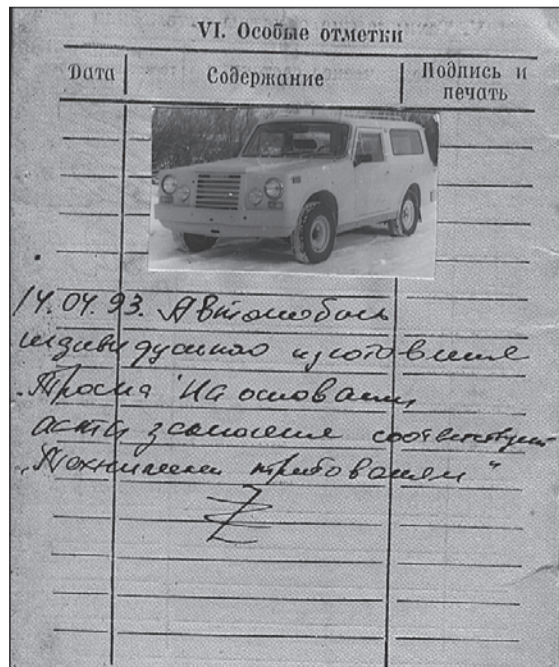 VI. Особые отметки
Дата
Содержание
Подпись и
печать
14.04.93. Автомобиль
индивидуального изготовления
На основании
акта соответствует
"Техническим требованиям"